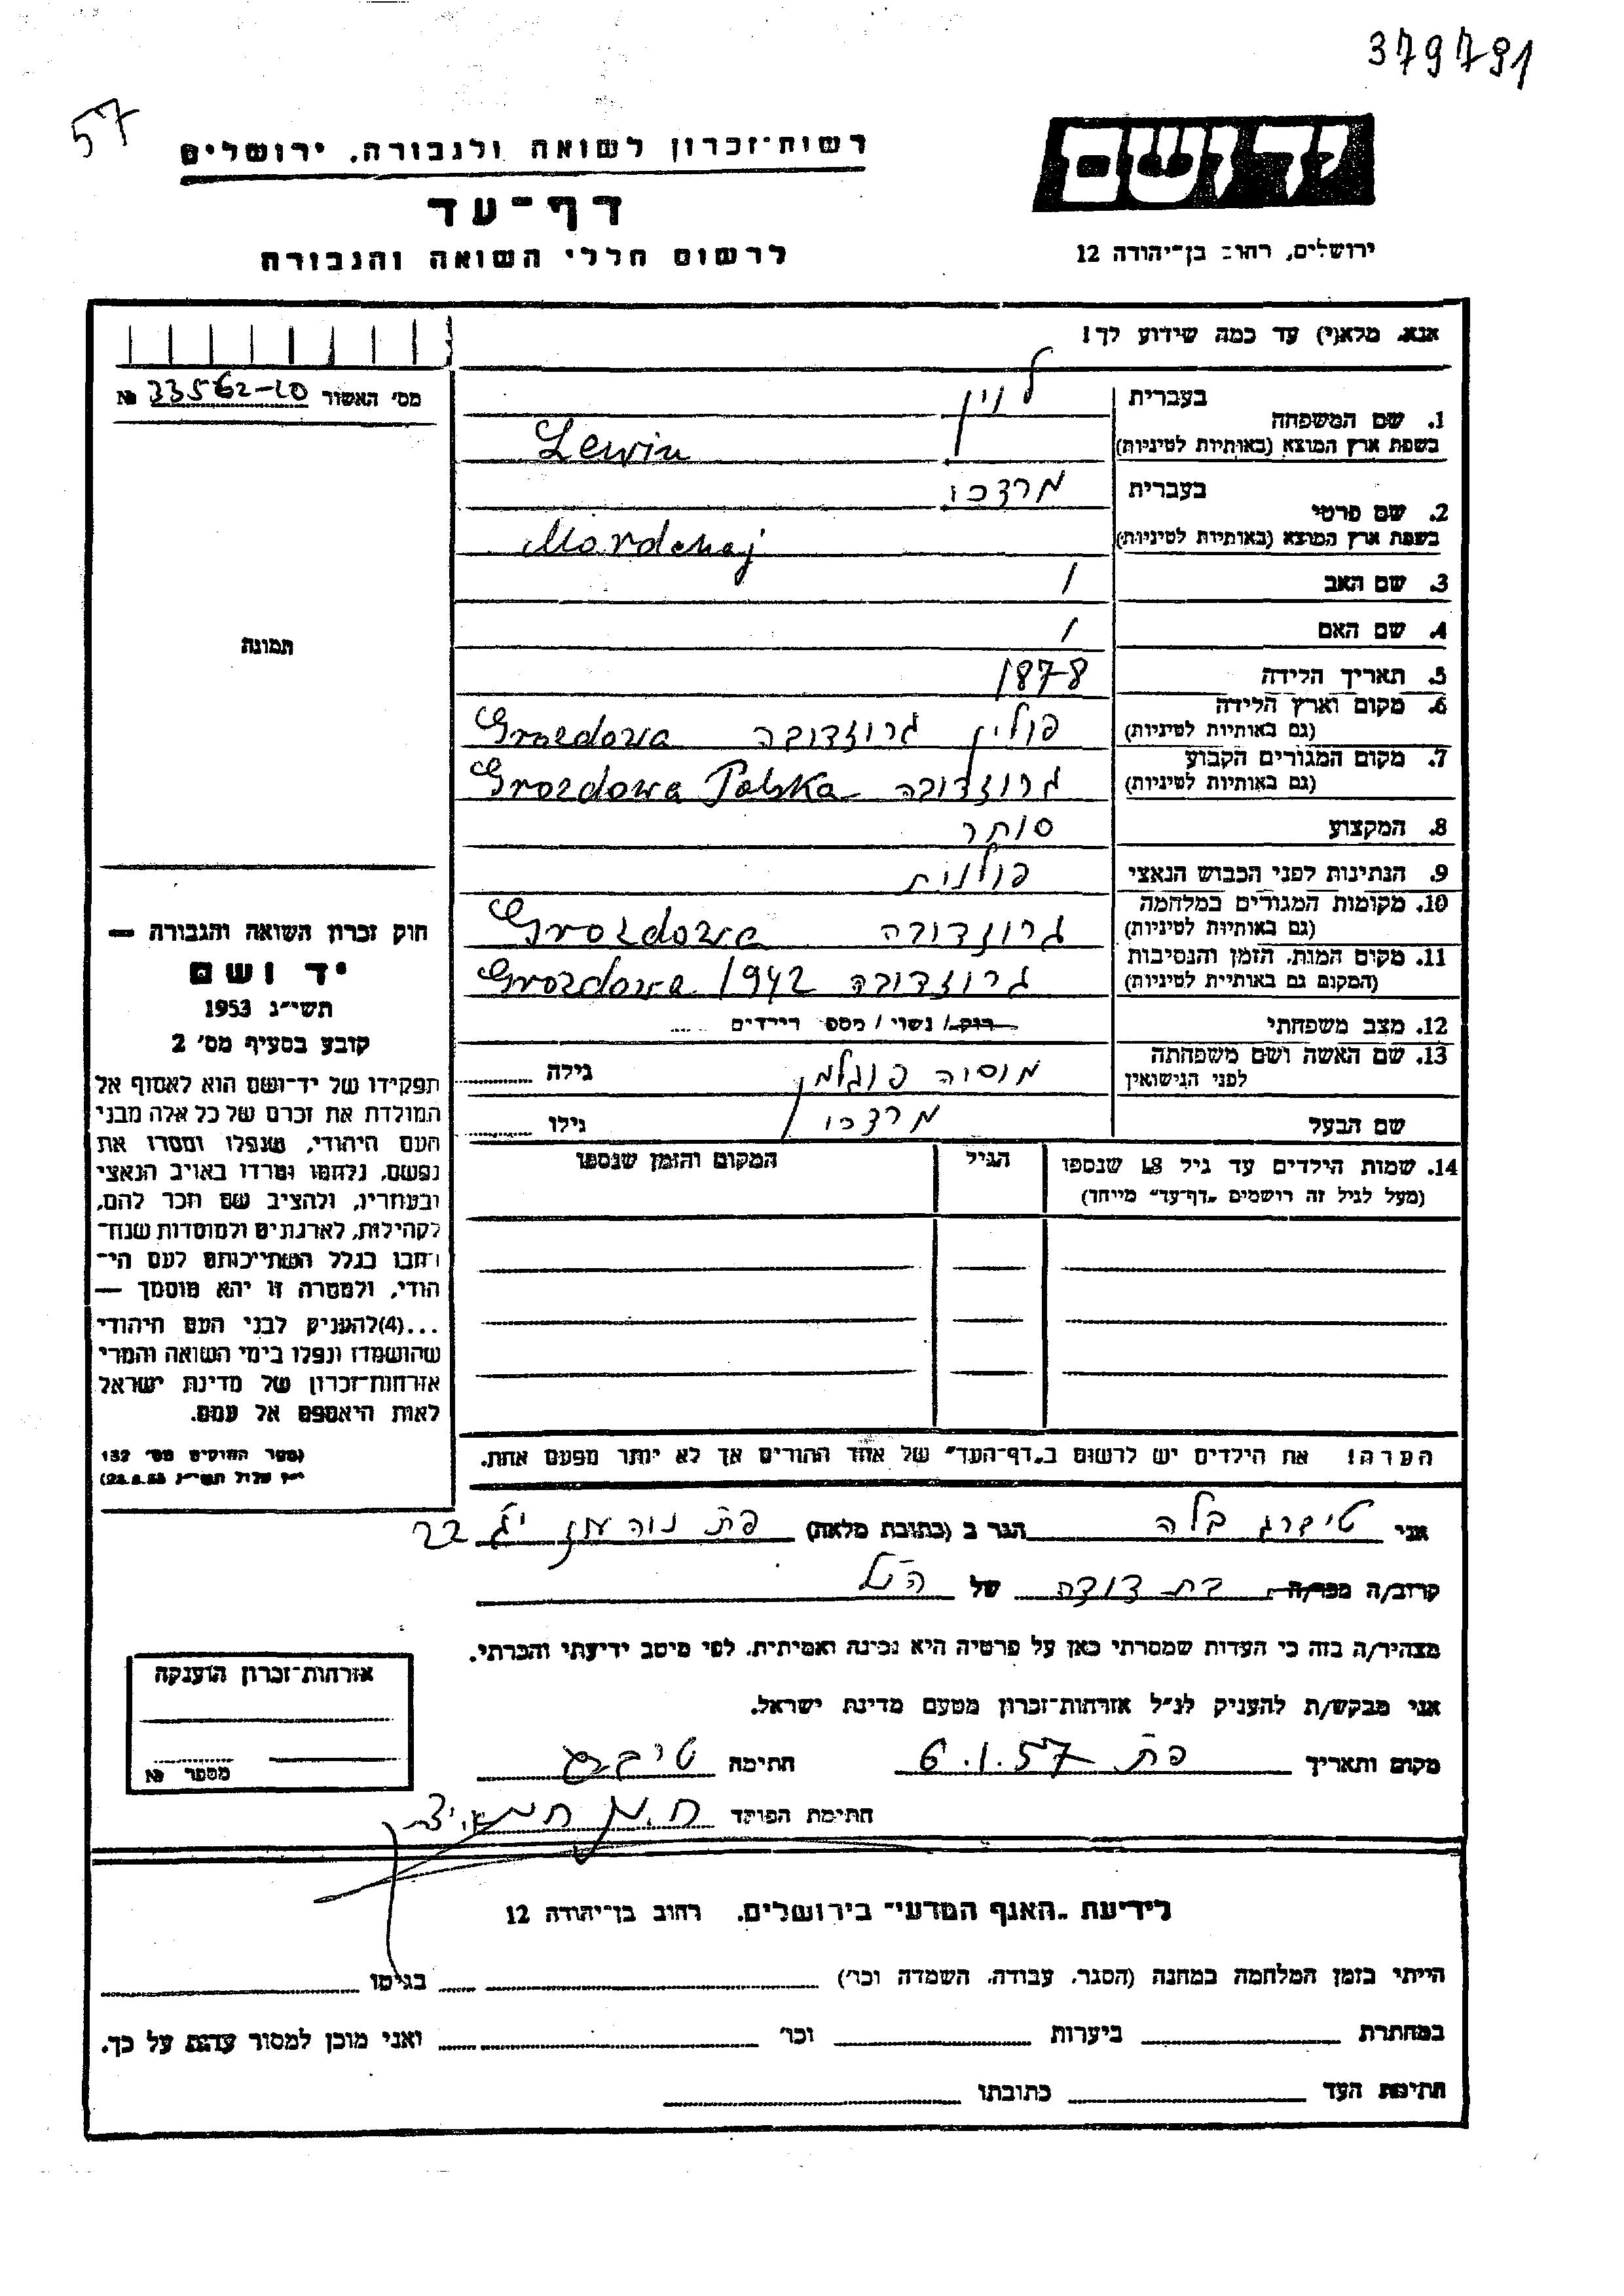 379791
57
יד ושם
רשות־זכרון לשואה ולגבורה, ירושלים
דף־עד
לרשום חללי השואה והגבורה
ירושלים, רחוב בן־יהודה 12
אנא, מלא(י) עד כמה שידוע לך!
מס' האשור 33562-20 №
תמונה
1. שם המשפחה
בעברית לוין
בשפת ארץ המוצא (באותיות לטיניות) Lewin
2. שם פרטי
בעברית מרדכי
בשפת ארץ המוצא (באותיות לטיניות) Mordchaj
3. שם האב /
4. שם האם /
5. תאריך הלידה 1878
6. מקום וארץ הלידה
(גם באותיות לטיניות) פולין גרוזדובה Grozdowa
7. מקום המגורים הקבוע
(גם באותיות לטיניות) גרוזדובה Grozdowa Polska
8. המקצוע סוחר
9. הנתינות לפני הכבוש הנאצי פולנית
10. מקומות המגורים במלחמה
(גם באותיות לטיניות) גרוזדובה Grozdowa
11. מקום המות, הזמן והנסיבות
(המקום גם באותיות לטיניות) גרוזדובה Grozdowa 1942
12. מצב משפחתי רוק/ נשוי / מספר הילדים .....
13. שם האשה ושם משפחתה
לפני הנישואין מוסיה פוגלמן גילה
שם הבעל מרדכי גילו
14. שמות הילדים עד גיל 18 שנספו
(מעל לגיל זה רושמים „דף־עד" מיוחד)
הגיל
המקום והזמן שנספו
הערה! את הילדים יש לרשום ב„דף־העד" של אחד ההורים אך לא יותר מפעם אחת.
חוק זכרון השואה והגבורה —
יד ושם
תשי״ג 1953
קובע בסעיף מס' 2
תפקידו של יד־ושם הוא לאסוף אל
המולדת את זכרם של כל אלה מבני
העם היהודי, שנפלו ומסרו את
נפשם, נלחמו ומרדו באויב הנאצי
ובעוזריו, ולהציב שם וזכר להם,
לקהילות, לארגונים ולמוסדות שנח־
רבו בגלל השתייכותם לעם הי־
הודי, ולמטרה זו יהא מוסמך —
...(4)להעניק לבני העם היהודי
שהושמדו ונפלו בימי השואה והמרי
אזרחות־זכרון של מדינת ישראל
לאות היאספם אל עמם.
(ספר החוקים מס' 132
אני טיברג בלה הגר ב (כתובת מלאה) פת נוה עוז יג 22
קרוב/ה מכר/ה בת דודה של הנ״ל
מצהיר/ה בזה כי העדות שמסרתי כאן על פרטיה היא נכונה ואמיתית, לפי מיטב ידיעתי והכרתי.
אני מבקש/ת להעניק לנ״ל אזרחות־זכרון מטעם מדינת ישראל.
מקום ותאריך פת 6.1.57 חתימה
חתימת הפוקד
אזרחות־זכרון הוענקה
מספר №
לידיעת „האגף המדעי" בירושלים, רחוב בן־יהודה 12
הייתי בזמן המלחמה במחנה (הסגר, עבודה, השמדה וכו') בגיטו
במחתרת ביערות וכו' ואני מוכן למסור עדות על כך.
חתימת העד כתובתו